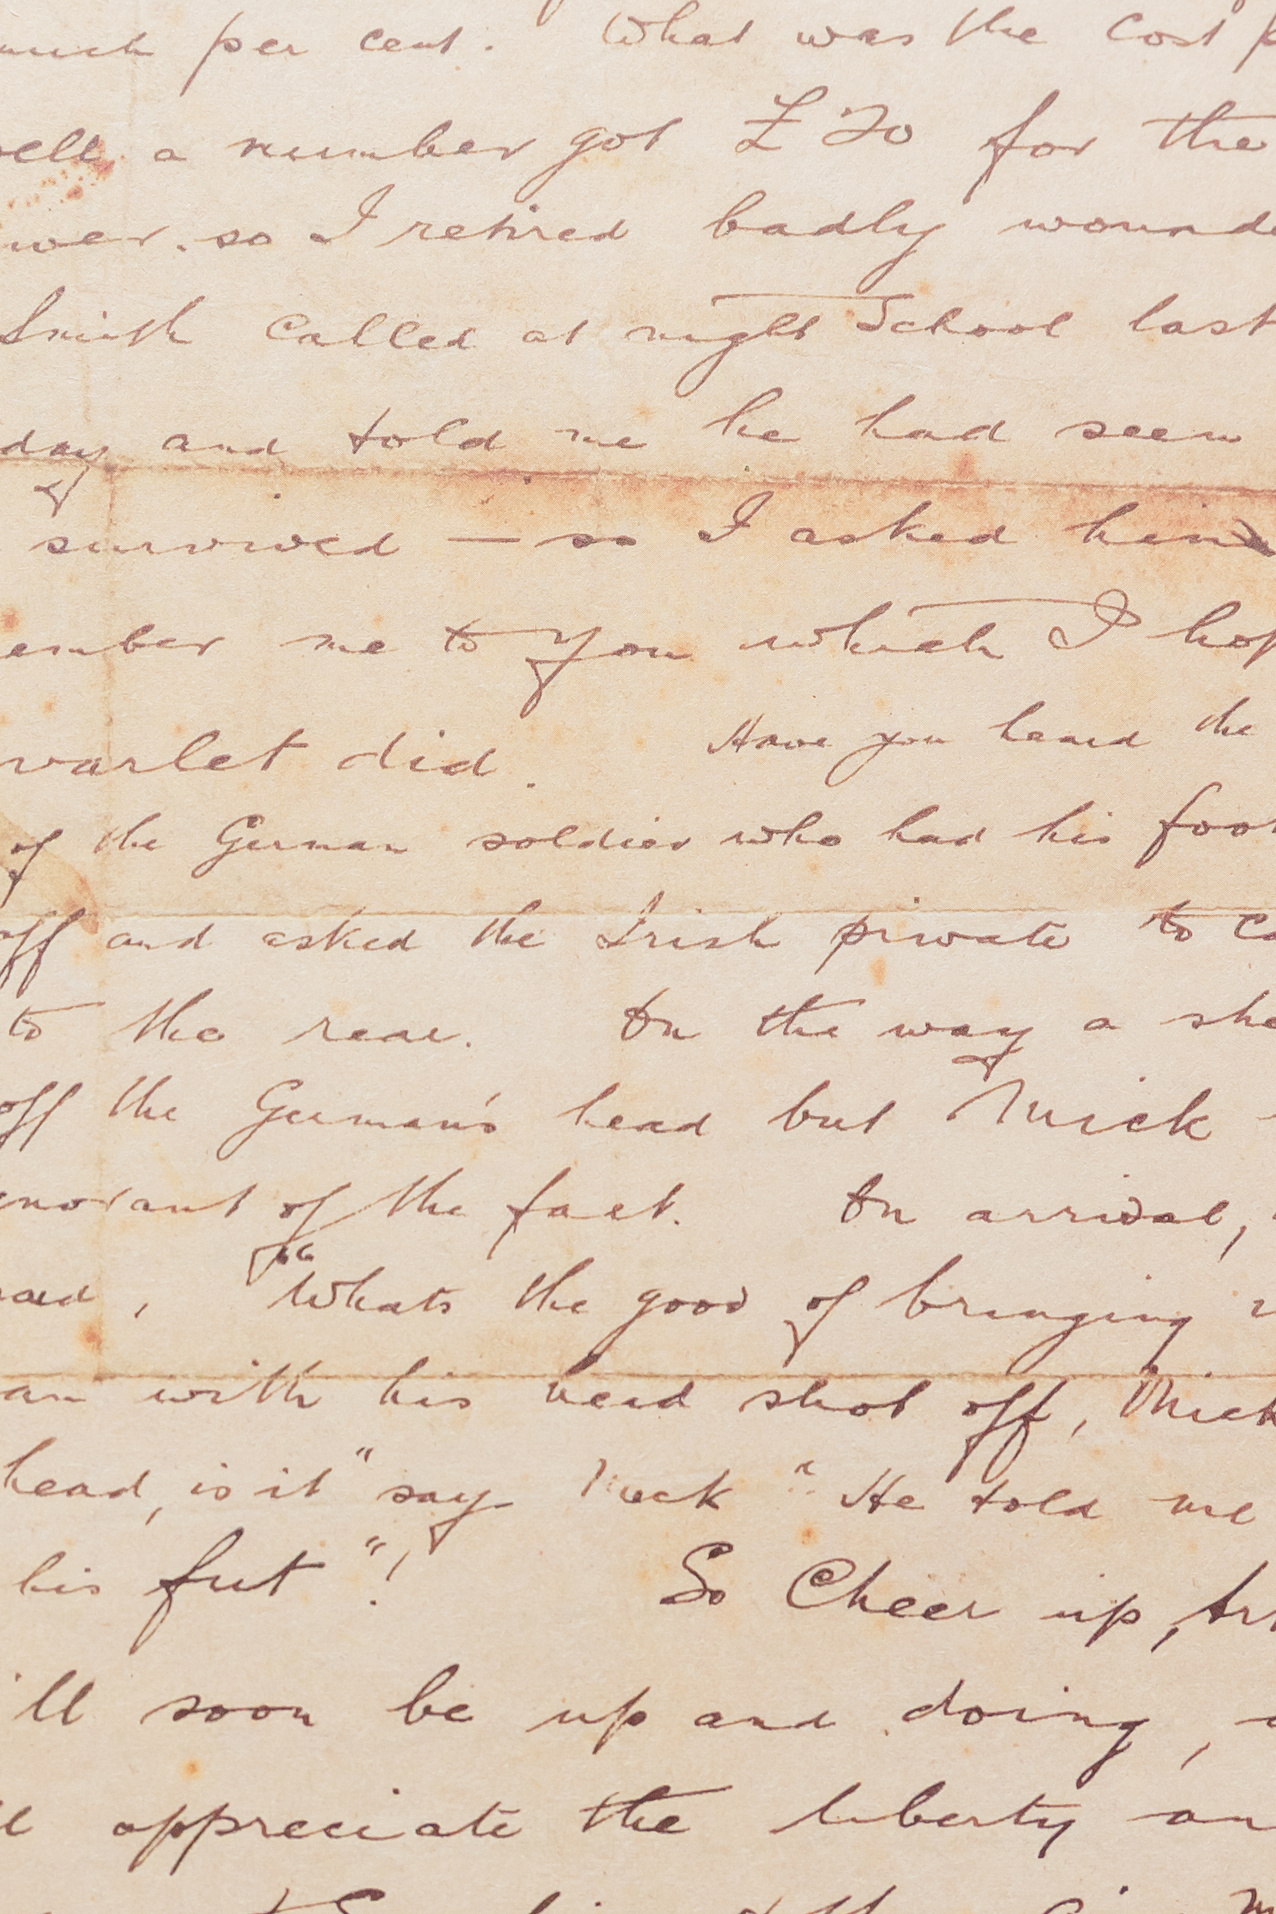 much per cent. What was the cost p
well a number got £20 for the
wer. so I retired badly wounde
Smith called at night School last
day and told me he had seen
survived — so I asked him
ember me to you which I hop
varlet did. Have you heard the
of the German soldier who had his foot
off and asked the Irish private to ca
to the rear. On the way a she
off the German's head but Mick
gnorant of the fact. On arrival,
said, "Whats the good of bringing
an with his head shot off, Mick
head, is it" say Mick "He told me
his fut"!
So Cheer up, Art
'll soon be up and doing,
appreciate the liberty an